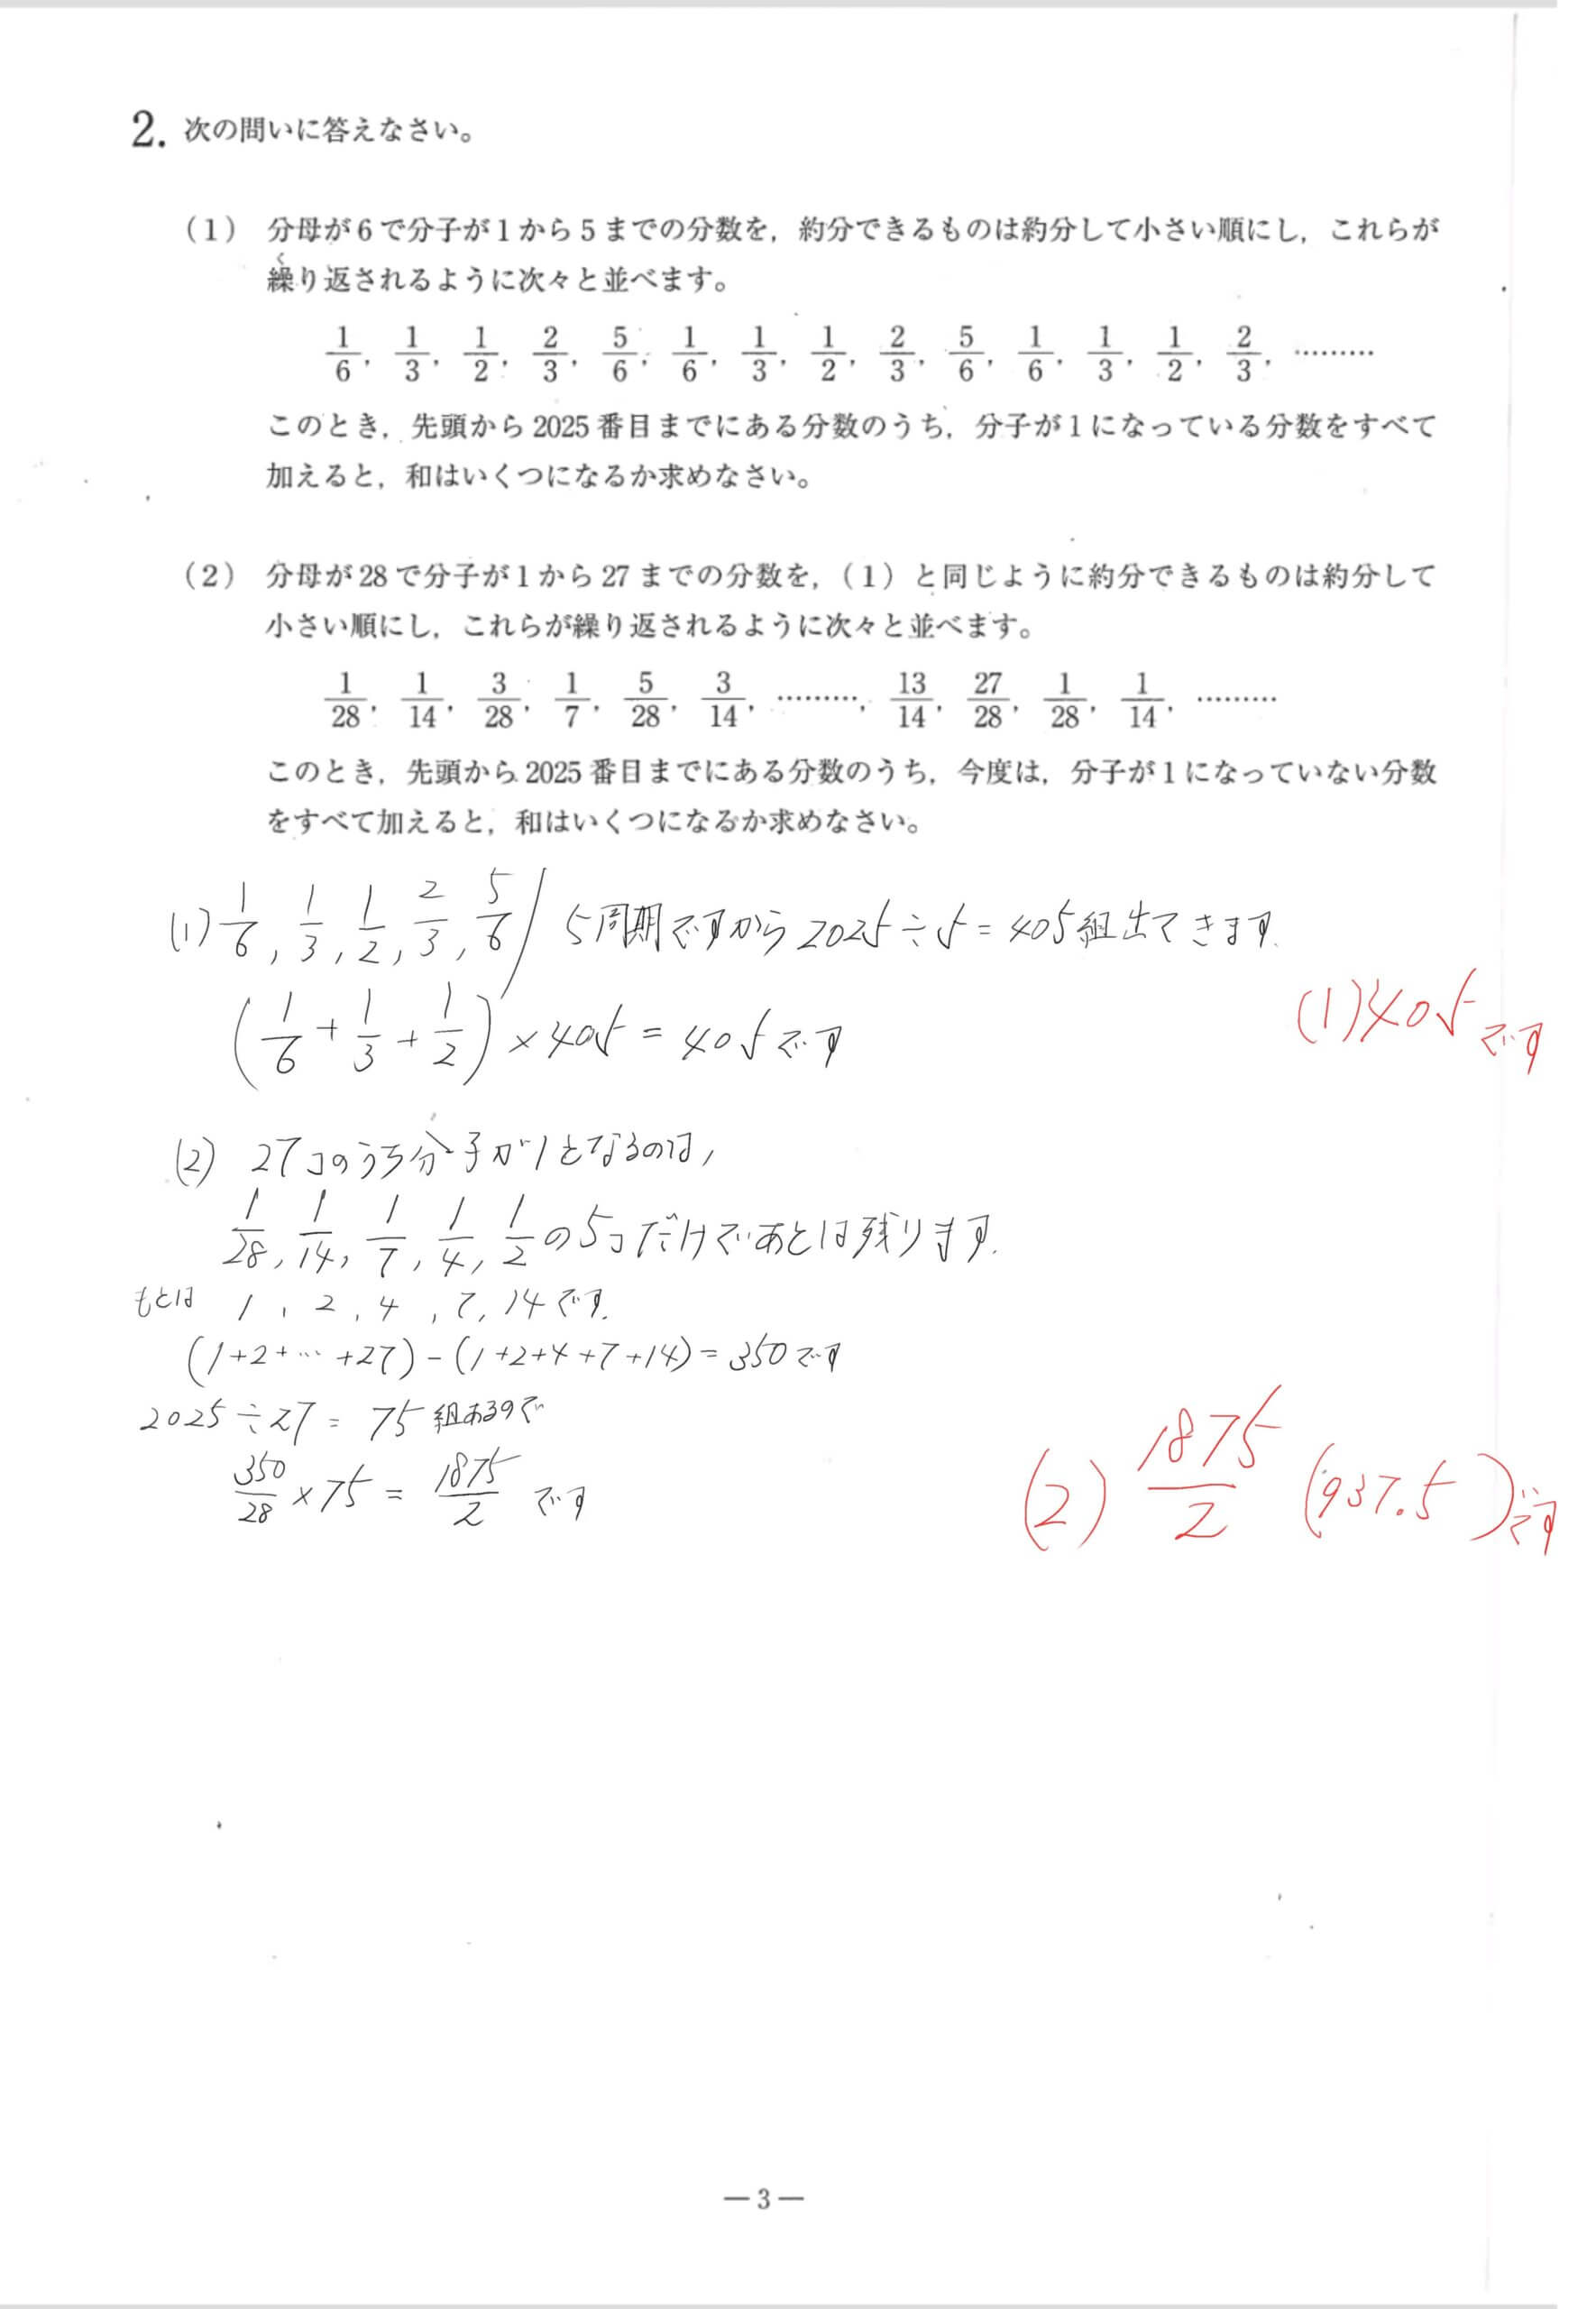 2. 次の問いに答えなさい。
(1) 分母が6で分子が1から5までの分数を,約分できるものは約分して小さい順にし,これらが
く
繰り返されるように次々と並べます。
1/6, 1/3, 1/2, 2/3, 5/6, 1/6, 1/3, 1/2, 2/3, 5/6, 1/6, 1/3, 1/2, 2/3, ………
このとき,先頭から2025番目までにある分数のうち,分子が1になっている分数をすべて
加えると,和はいくつになるか求めなさい。
(2) 分母が28で分子が1から27までの分数を,(1)と同じように約分できるものは約分して
小さい順にし,これらが繰り返されるように次々と並べます。
1/28, 1/14, 3/28, 1/7, 5/28, 3/14, ………, 13/14, 27/28, 1/28, 1/14, ………
このとき,先頭から2025番目までにある分数のうち,今度は,分子が1になっていない分数
をすべて加えると,和はいくつになるか求めなさい。
(1) 1/6, 1/3, 1/2, 2/3, 5/6 / 5周期ですから 2025÷5=405組出てきます.
(1/6+1/3+1/2)×405=405です
(1)405です
(2) 27コのうち分子が1となるのは,
1/28, 1/14, 1/7, 1/4, 1/2の5コだけであとは残ります.
もとは 1, 2, 4, 7, 14です.
(1+2+…+27)-(1+2+4+7+14)=350です
2025÷27=75組あるので
350/28×75=1875/2 です
(2) 1875/2 (937.5)です
— 3 —